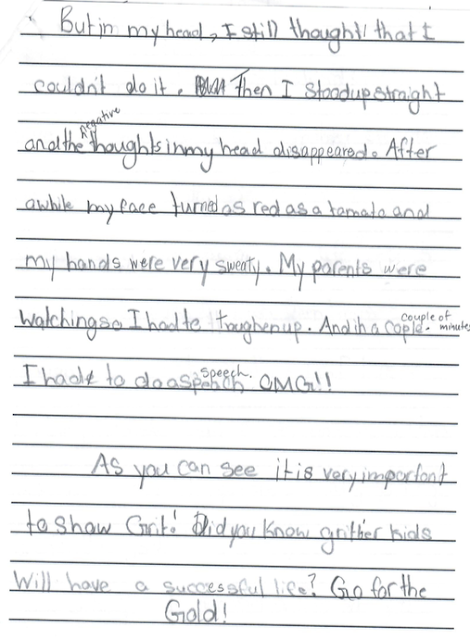 But in my head, I still thought that I
couldn't do it. Then I stood up straight
and the negative thoughts in my head disappeared. After
awhile my face turned as red as a tomato and
my hands were very sweaty. My parents were
watching so I had to toughen up. And in a couple of minutes
I had to do a speech. OMG!!
As you can see it is very important
to show Grit! Did you know grittier kids
Will have a successful life? Go for the
Gold!